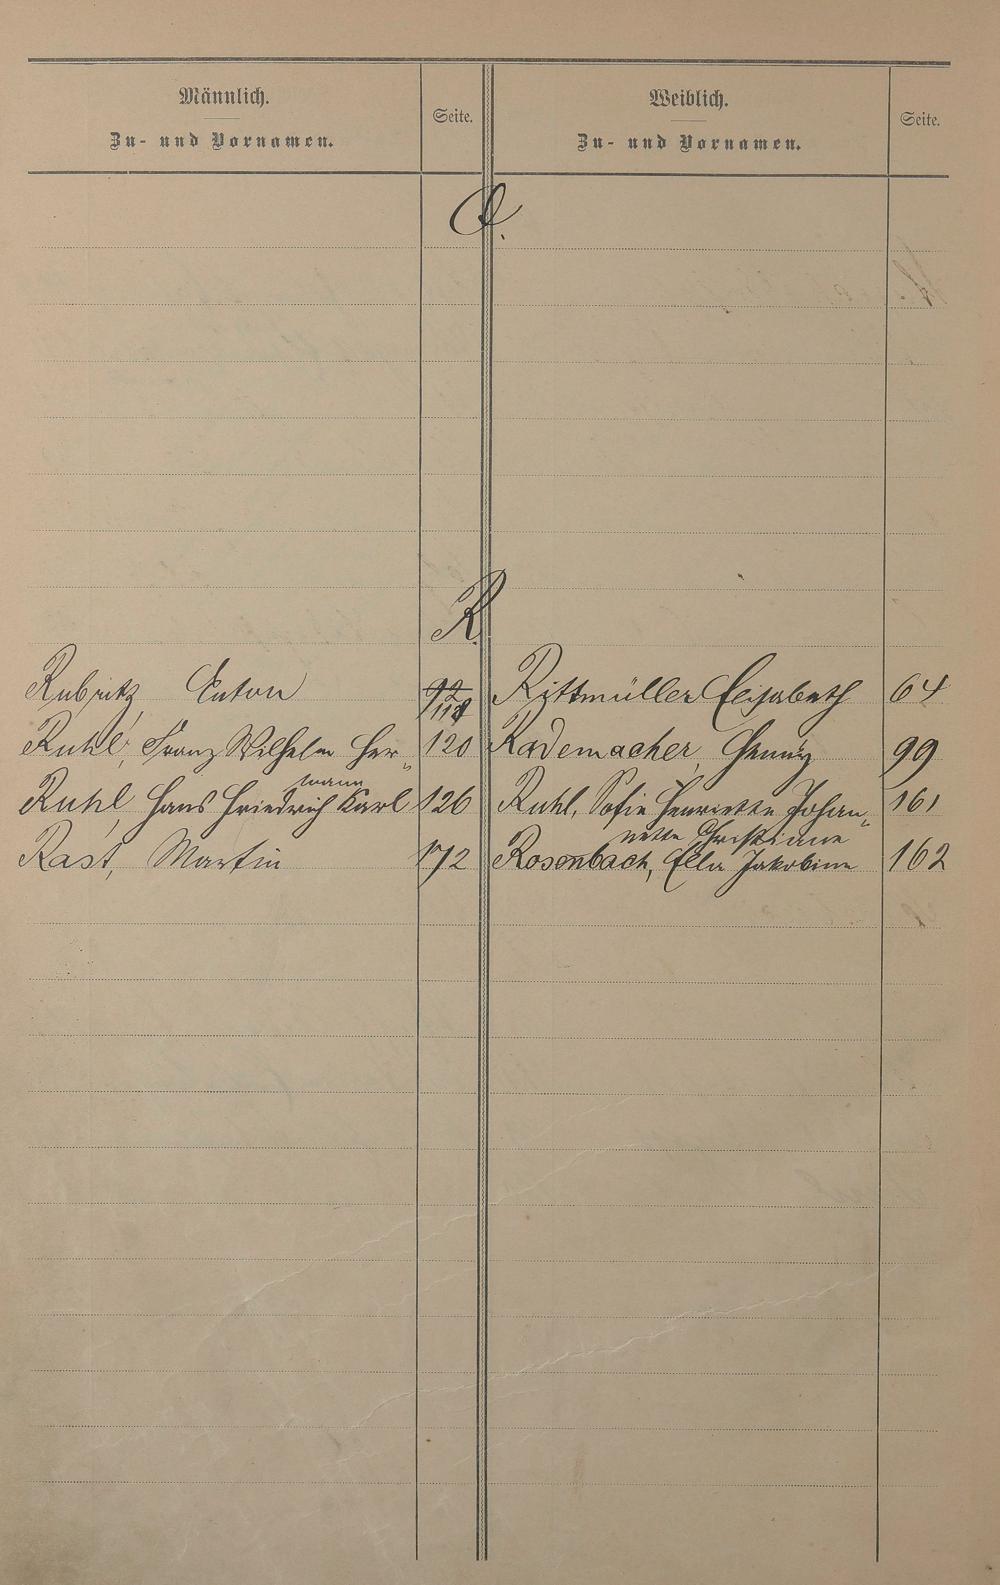 Männlich.
Zu- und Vornamen.
Seite.
Weiblich.
Zu- und Vornamen.
Seite.
Q.
R.
Rubritz, Anton 92/118 Rittmüller Elisabeth 64
Ruhl, Franz Wilhelm Her- 120 Rademacher, Henny 99
mann
Ruhl, Hans Friedrich Karl 126 Ruhl, Sofie Henriette Johan- 161
nette Christiane
Rast, Martin 172 Rosenbach, Ella Jakobine 162